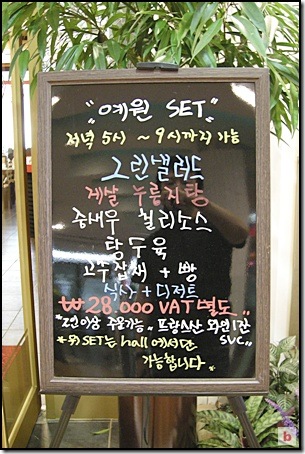 "예원 SET"
저녁 5시 ~ 9시까지 가능
그린샐러드
게살 누룽지탕
중새우 칠리소스
탕두육
고추잡채 + 빵
식사 + 디저트
₩28.000 VAT별도"
*2인이상 주문가능" 프랑스산 와인 1잔 SVC"
*위 SET는 hall 에서만
가능합니다*
b